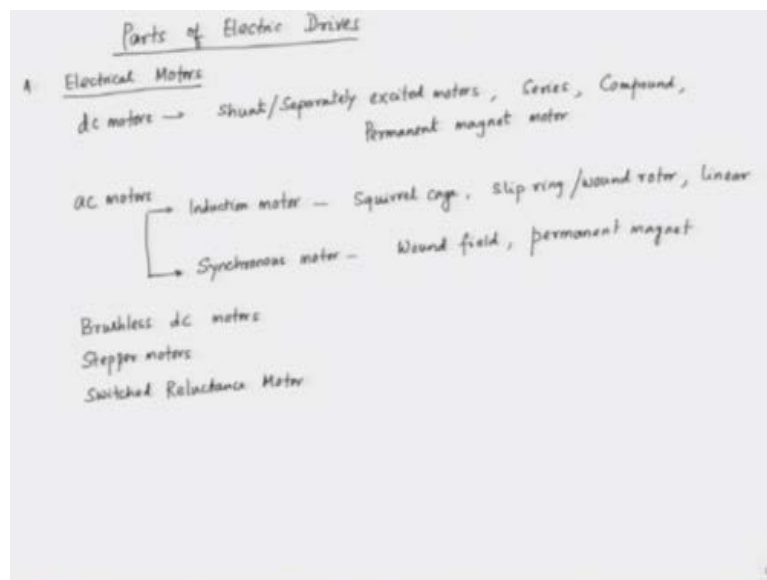 Parts of Electric Drives
1. Electrical Motors
dc motors → Shunt/Separately excited motors, Series, Compound,
Permanent magnet motor
ac motors
→ Induction motor - Squirrel cage, Slip ring/wound rotor, linear
→ Synchronous motor - Wound field, permanent magnet
Brushless dc motors
Stepper motors
Switched Reluctance Motor